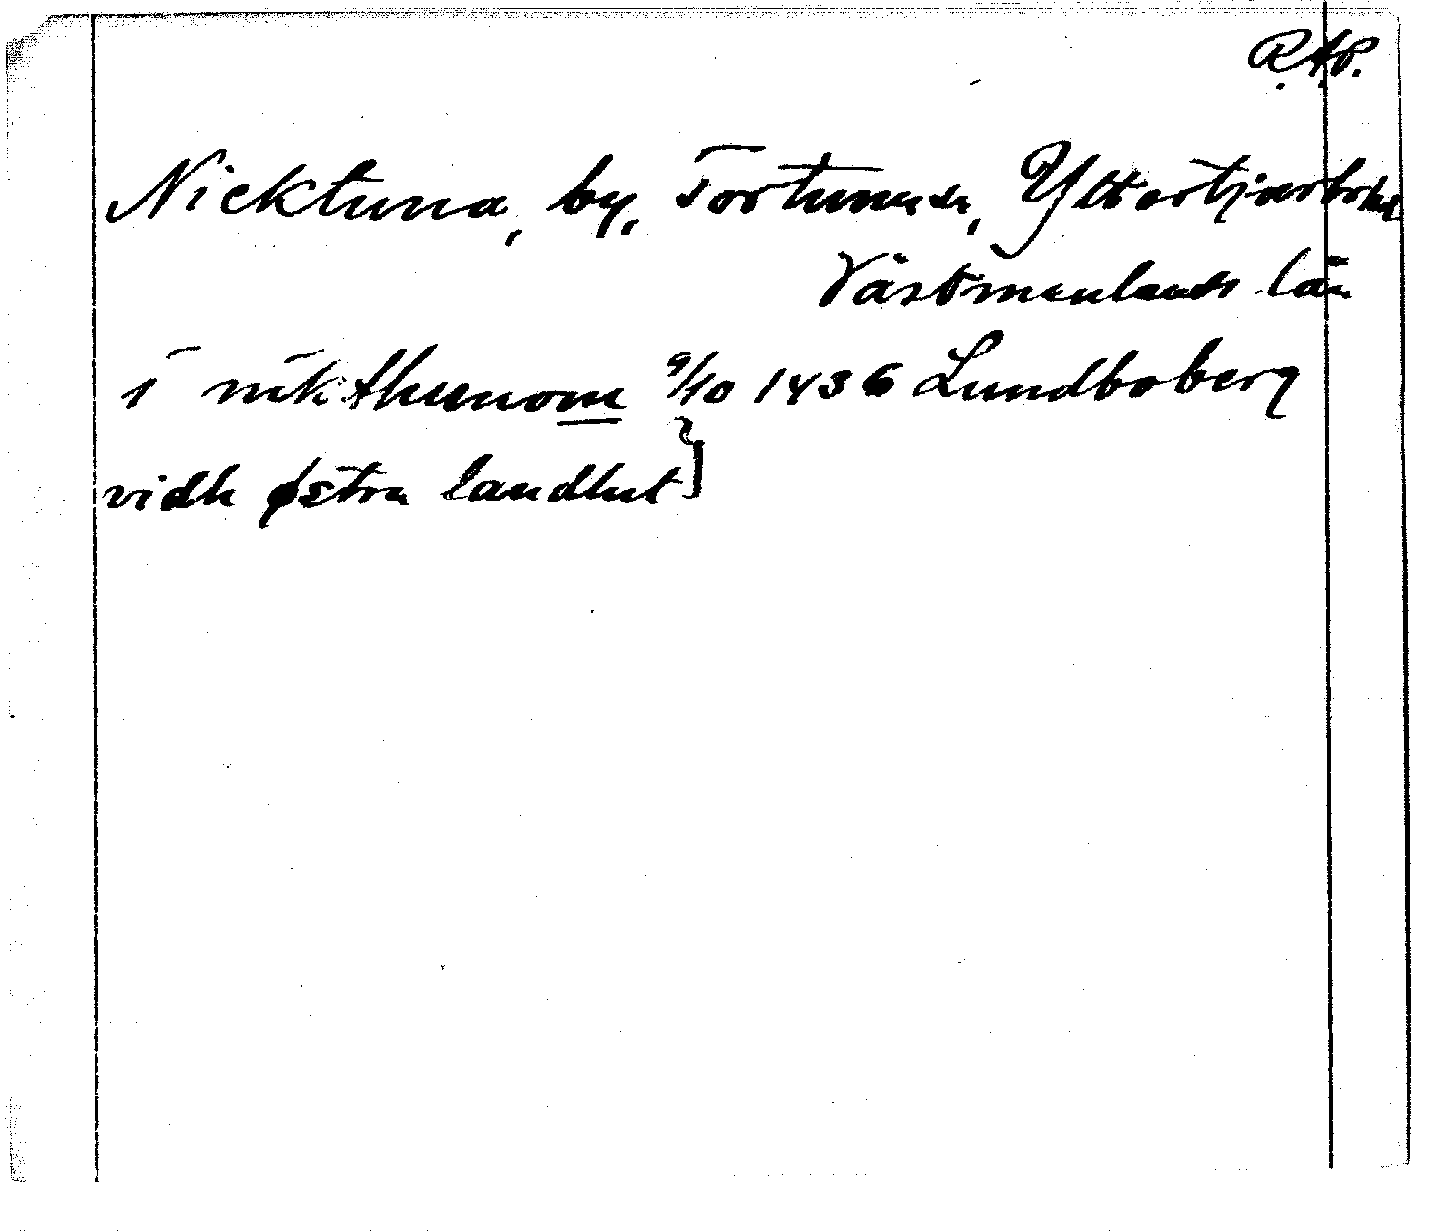 R.A.P.
Nicktuna, by, Tortuna sn, Yttertjurbo hd
Västmanlands län
i nikthunom 9/10 1436 Lundboberg
vidh østra landhut]